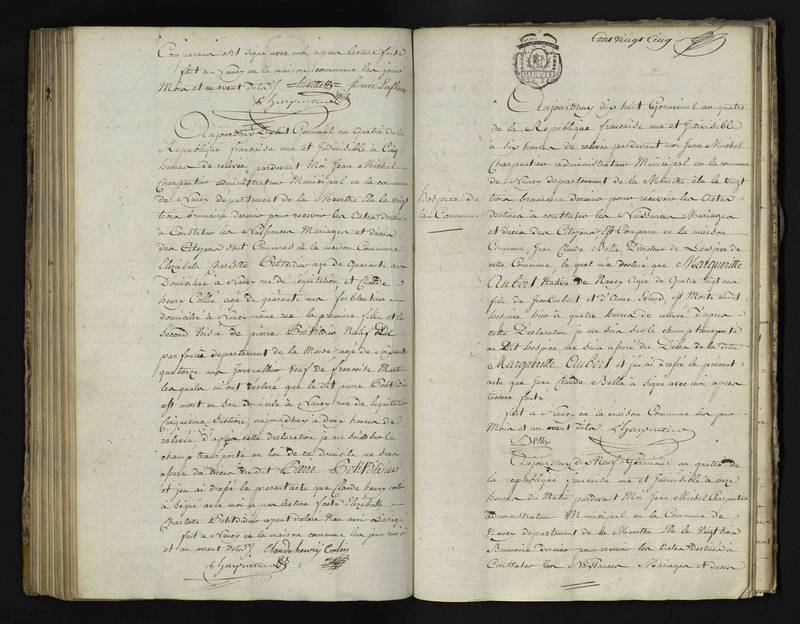 Comparans ont signé avec moi après lecture faite
fait à Nancy en la maison commune les jour
Mois et an avant dits
Charpentier
Aujourd'huy Germinal an Quatre de la
République française une et Indivisible à Cinq
heures de relevée pardevant Moi Jean Michel
Charpentier administrateur Municipal en la commune
de Nancy departement de la Meurthe élu le vingt
trois brumaire dernier pour recevoir les actes destinés
à Constater les Naissances Mariages et décès
des Citoyens sont Comparus en la maison Commune
Elizabeth Charlotte Petitdidier agée de quarante ans
Domiciliée à Nancy rue de legalitation et Claude
henry Collin agé de quarante ans ferblantier
domicilié à Nancy même rue la première fille et le
second Voisin de pierre Petitdidier Natif de
departement de la Meuse agé de soixante
quatorze ans journallier Veuf de françoise
lesquels m'ont déclaré que le dit pierre Petitdidier
est mort en son domicile à Nancy rue de
Cinquième Section, aujourd'huy à deux heures de
relevée d'après cette déclaration je me suis sur le
champ transporté au lieu de ce domicile me suis
assuré du décès du dit Pierre Petitdidier
et j'en ai drésé le présent acte que Claude henry colin
a signé avec moi après lecture faite Elizabeth
Charlotte Petitdidier ayant déclaré Ne savoir
fait à Nancy en la maison commune les jour mois
et an avant dits
Claude henry Colin
Charpentier
Cent vingt Cinq
Aujourd'huy dix huit Germinal an quatre
de la République française une et Indivisible
à six heures de relevée pardevant moi Jean Michel
Charpentier administrateur Municipal en la commune
de Nancy departement de la Meurthe élu le vingt
trois brumaire dernier pour recevoir les actes
destinés à constater les Naissances Mariages
et décès des Citoyens Est Comparu en la maison
Commune, Jean Claude Directeur de L'hospice de
cette Commune, lequel m'a déclaré que Margueritte
Aubert Native de Nancy agée de Quatre vingt ans
fille de Jean Aubert et d'Anne est Morte audit
hospice hier à quatre heures de relevée d'après
cette Déclaration je me suis sur le champ transporté
au Dit hospice me suis assuré du Décès de la ditte
Margueritte Aubert et j'en ai drésé le présent
acte que Jean Claude a signé avec moi après
lecture faite
fait à Nancy en la maison Commune les jour
Mois et an avant dits
Charpentier
hospice de
la Commune
Aujourd'huy dix Neuf Germinal an quatre de
la république française une et Indivisible à onze
heures du Matin pardevant Moi Jean Michel Charpentier
administrateur Municipal en la Commune de
Nancy departement de la Meurthe Elu le vingt trois
Brumaire dernier pour recevoir les actes destinés à
Constater les Naissances Mariages et décès